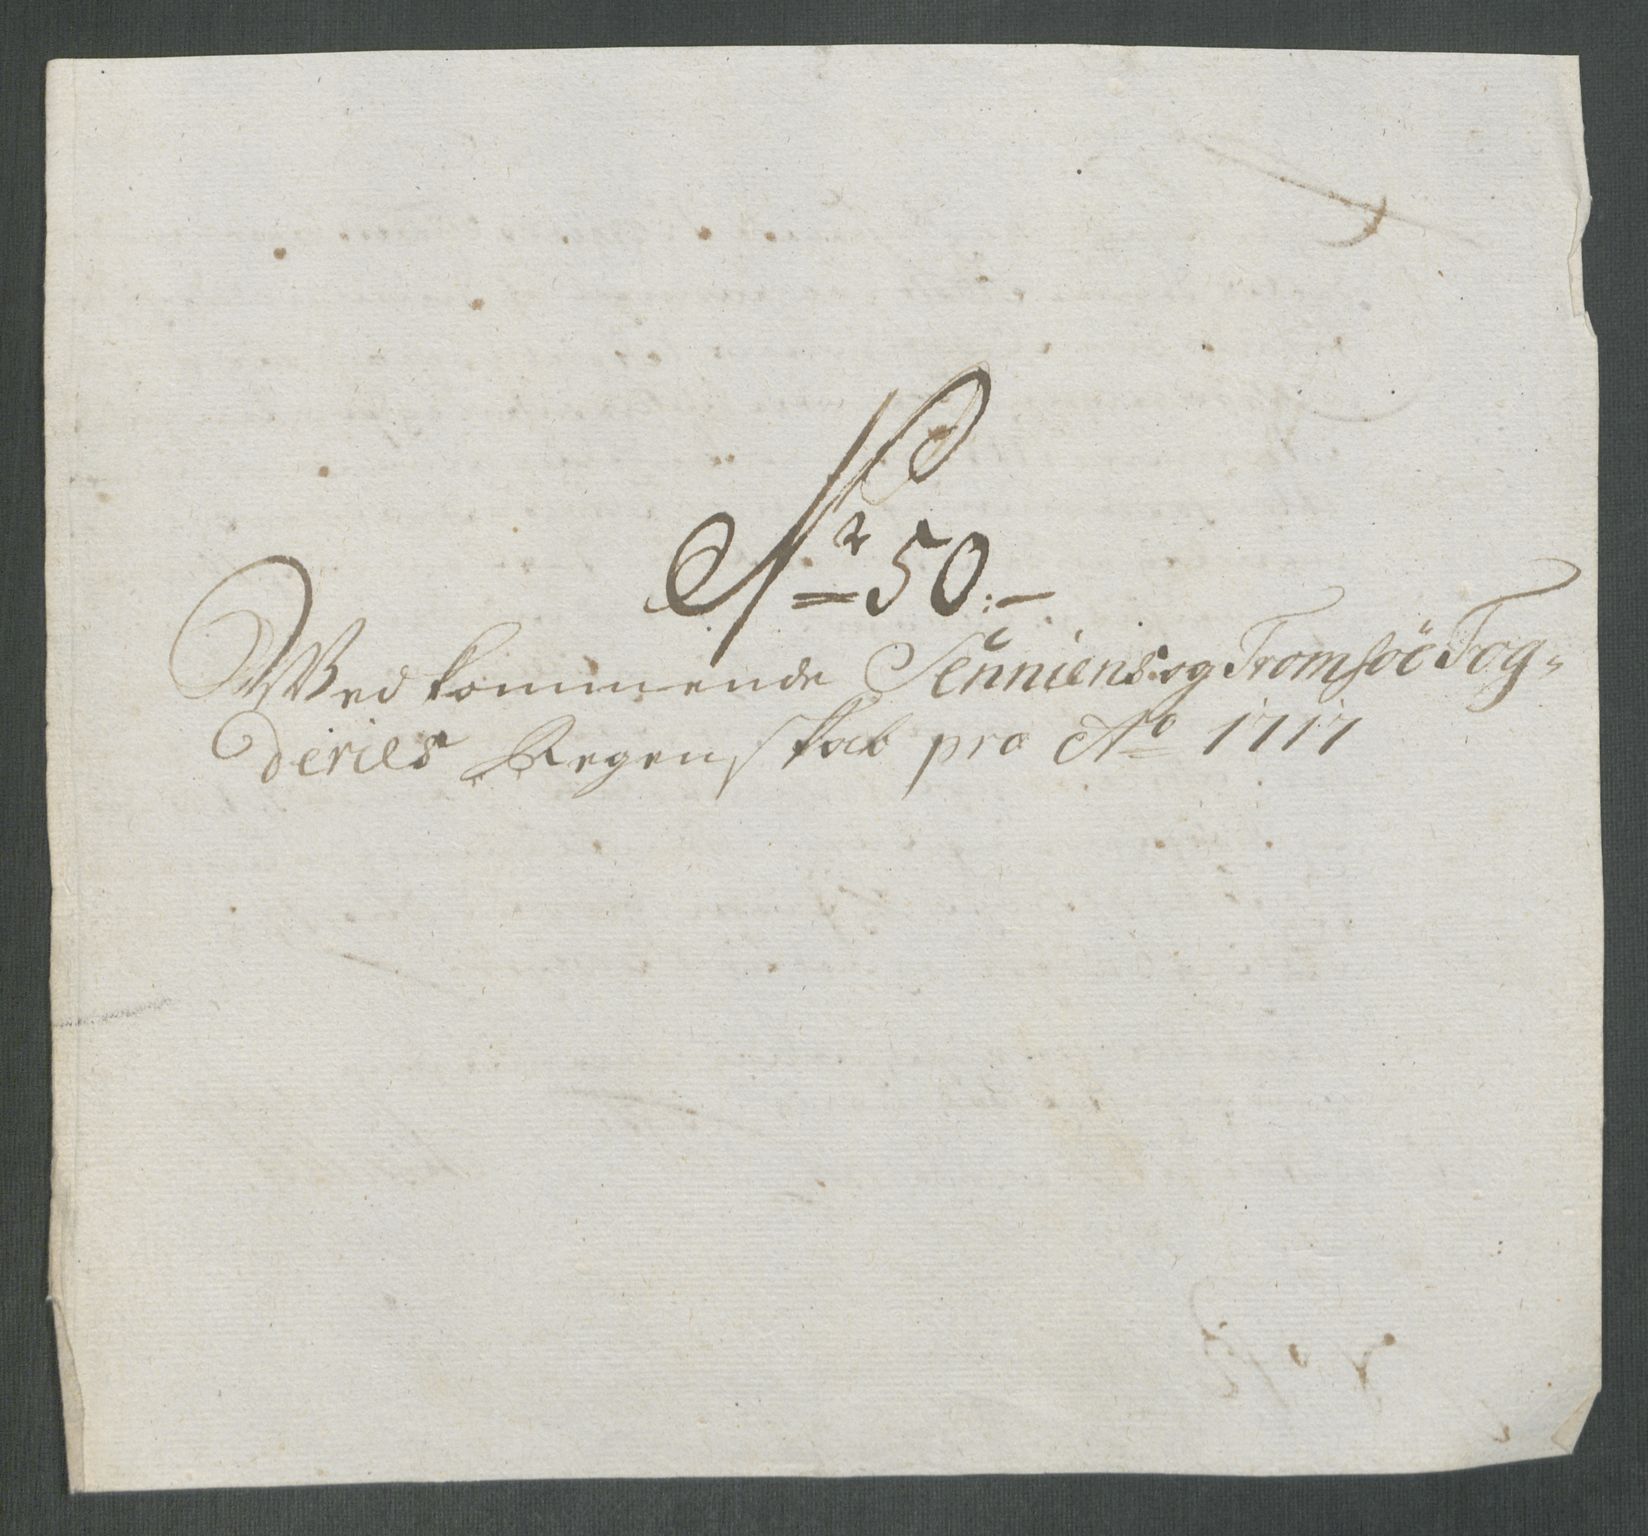 Nr 50:-
Wedkommende Senniens og Tromsöe Fog=
deries Regenskab pro Ao 1717